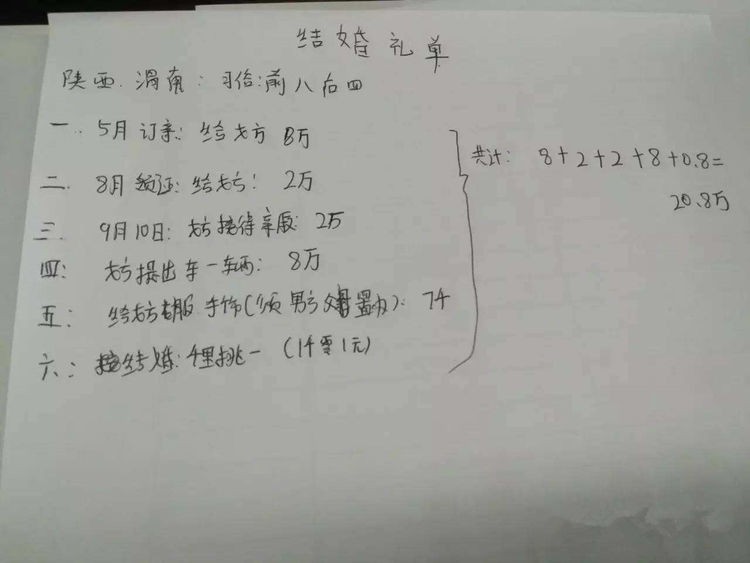 结婚礼单
陕西.渭南:习俗:前八后四
一.5月订亲:给女方8万
二.8月领证:给女方:2万
三.9月10日:女方接待亲朋:2万
四:女方提出车一车辆:8万
五:给女方衣服手饰(须男方 置办):7千
六:接结婚:千里挑一(1千零1元)
共计:8+2+2+8+0.8=
20.8万